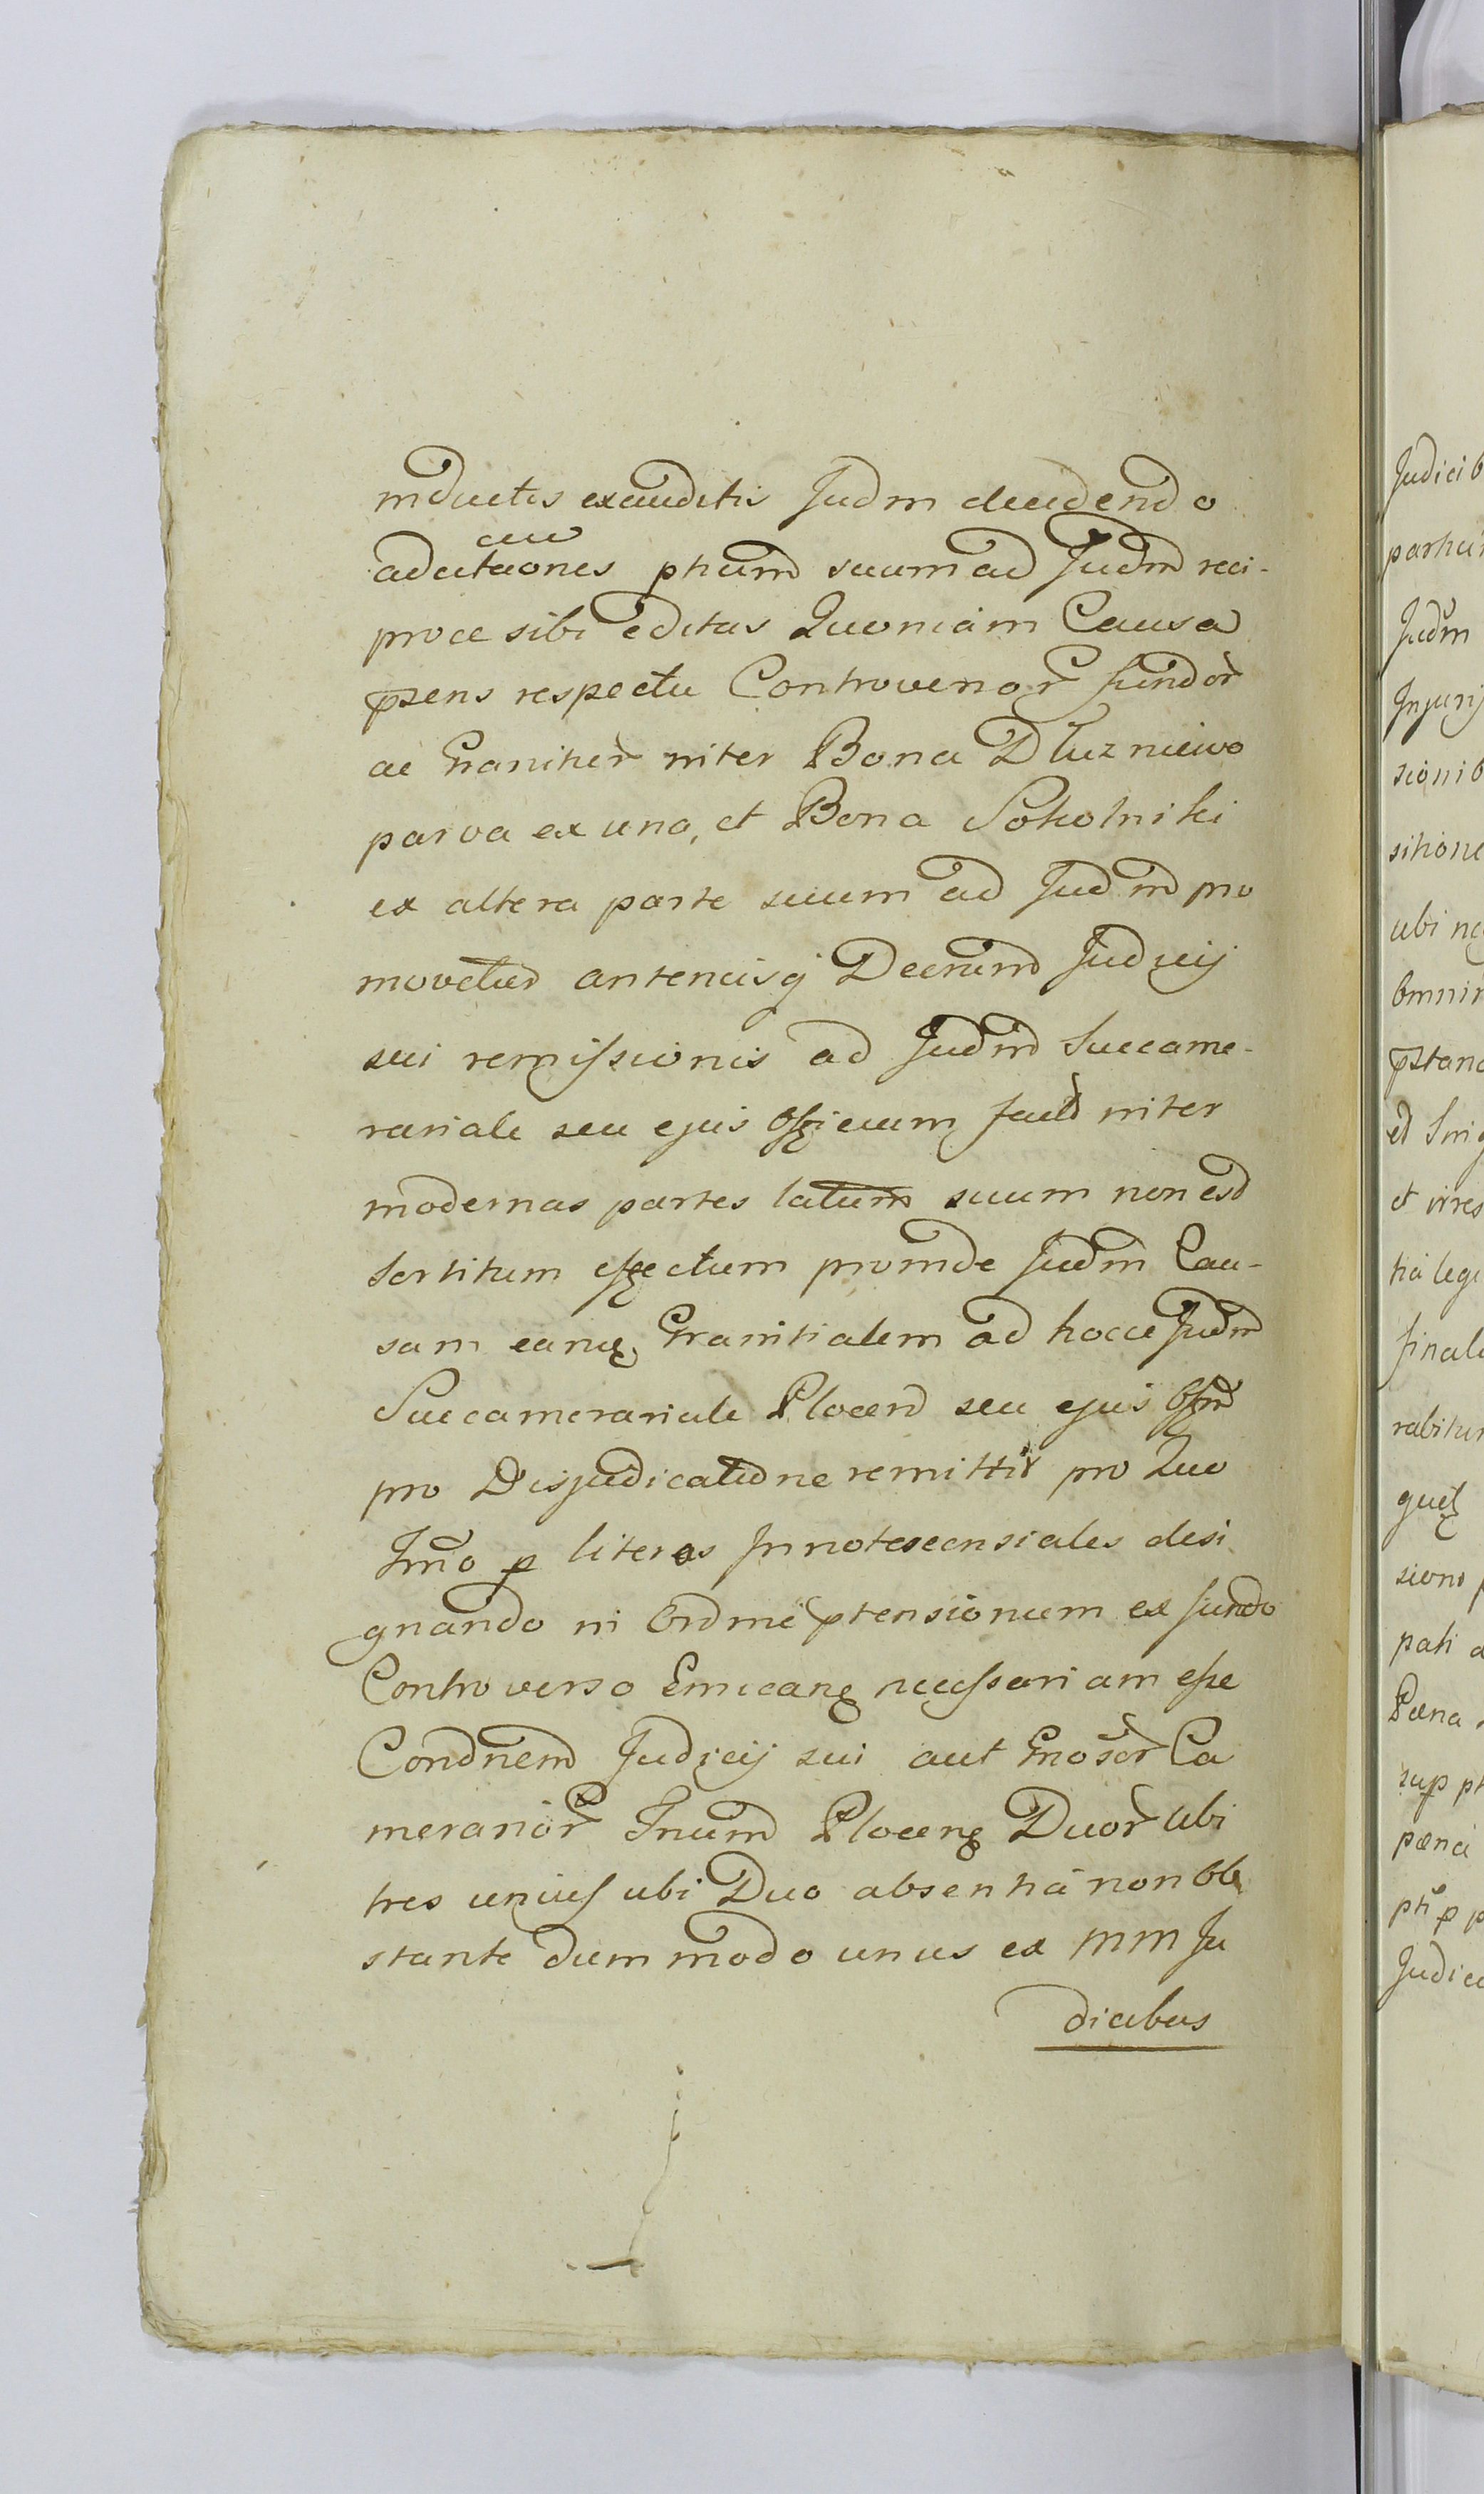 inductis exauditis Judm decidendo
adcitaones phum suum ad Judm reci-
proce sibi editas Quoniam Causa
pzens respectu Controversor fundor
ac Granicier inter Bona Dłuzniewo
parva ex una, et Bona Sokolniki
ex altera parte suum ad Judm pro
movetur antencisq Decrum Judicij
sui remissionis ad Judm Succame-
rariale seu ejus Officium fund inter
modernas partes latum suum non est
sortitum effectum proinde Judm Cau-
sam eanq Granitialem ad hocce Judm
Succamerariale Plocen seu ejus Offm
pro Disjudicatione remittit pro Quo
Jmo p literas Innotescensiales desi
gnando in Ordine ptensionum ex fundo
Controverso Emicanq necessariam esse
Condnem Judicij sui aut Gnosor Ca
merarior Jnum Plocenq Duor ubi
tres unius ubi Duo absentia non ob
stante dum modo unus ex MM Ju
dicibus
Judicib
Judm
Injurij
sionib
ubi
pstan
et
finale
rabitur
pati
Pæna
pæna
Judice